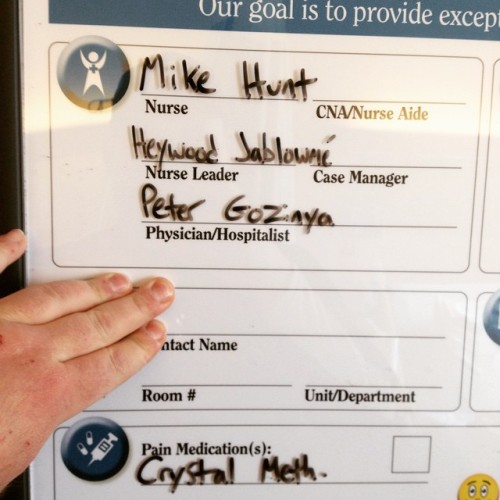 Our goal is to provide excep
Mike Hunt
Nurse CNA/Nurse Aide
Heywood Jablowmé
Nurse Leader Case Manager
Peter Gozinya
Physician/Hospitalist
ntact Name
Room # Unit/Department
Pain Medication(s):
Crystal Meth.